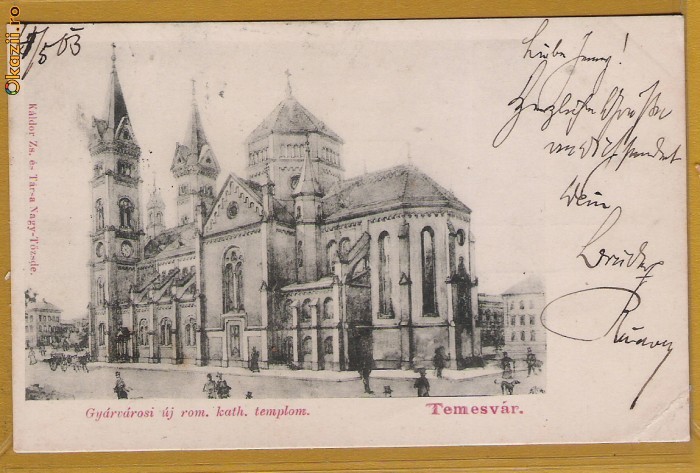 okazii.ro
/5 03
Káldor Zs. és Társa Nagy-Tőzsde.
Liebe Jenny!
Herzliche Grüße
von
Dein
Bruder
Gyárvárosi új rom. kath. templom.
Temesvár.